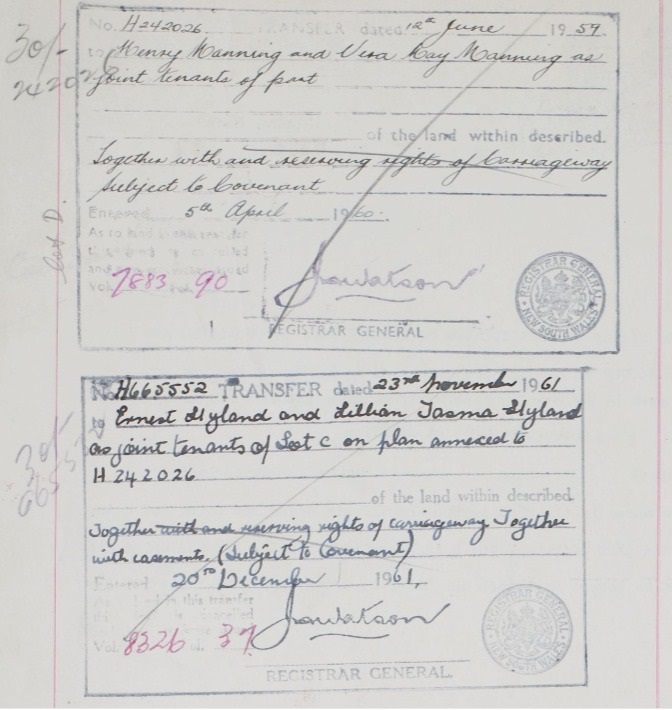 No. H242026. TRANSFER dated 12th June 1959
to Henry Manning and Vera May Manning as
joint tenants of part
30/-
242026
of the land within described.
Together with and reserving rights of Carriageway
Subject to Covenant
Entered 5th April 1960.
Lot D.
7883 90
REGISTRAR GENERAL
REGISTRAR GENERAL
NEW SOUTH WALES
No. H665552 TRANSFER dated 23rd November 1961
to Ernest Hyland and Lillian Tasma Hyland
as joint tenants of Lot C on plan annexed to
H 242026
30/-
of the land within described.
Together with and reserving rights of carriageway Together
with easements. (Subject to Covenant)
Entered 20th December 1961.
this transfer
Vol. 8326 37
REGISTRAR GENERAL
REGISTRAR GENERAL
NEW SOUTH WALES